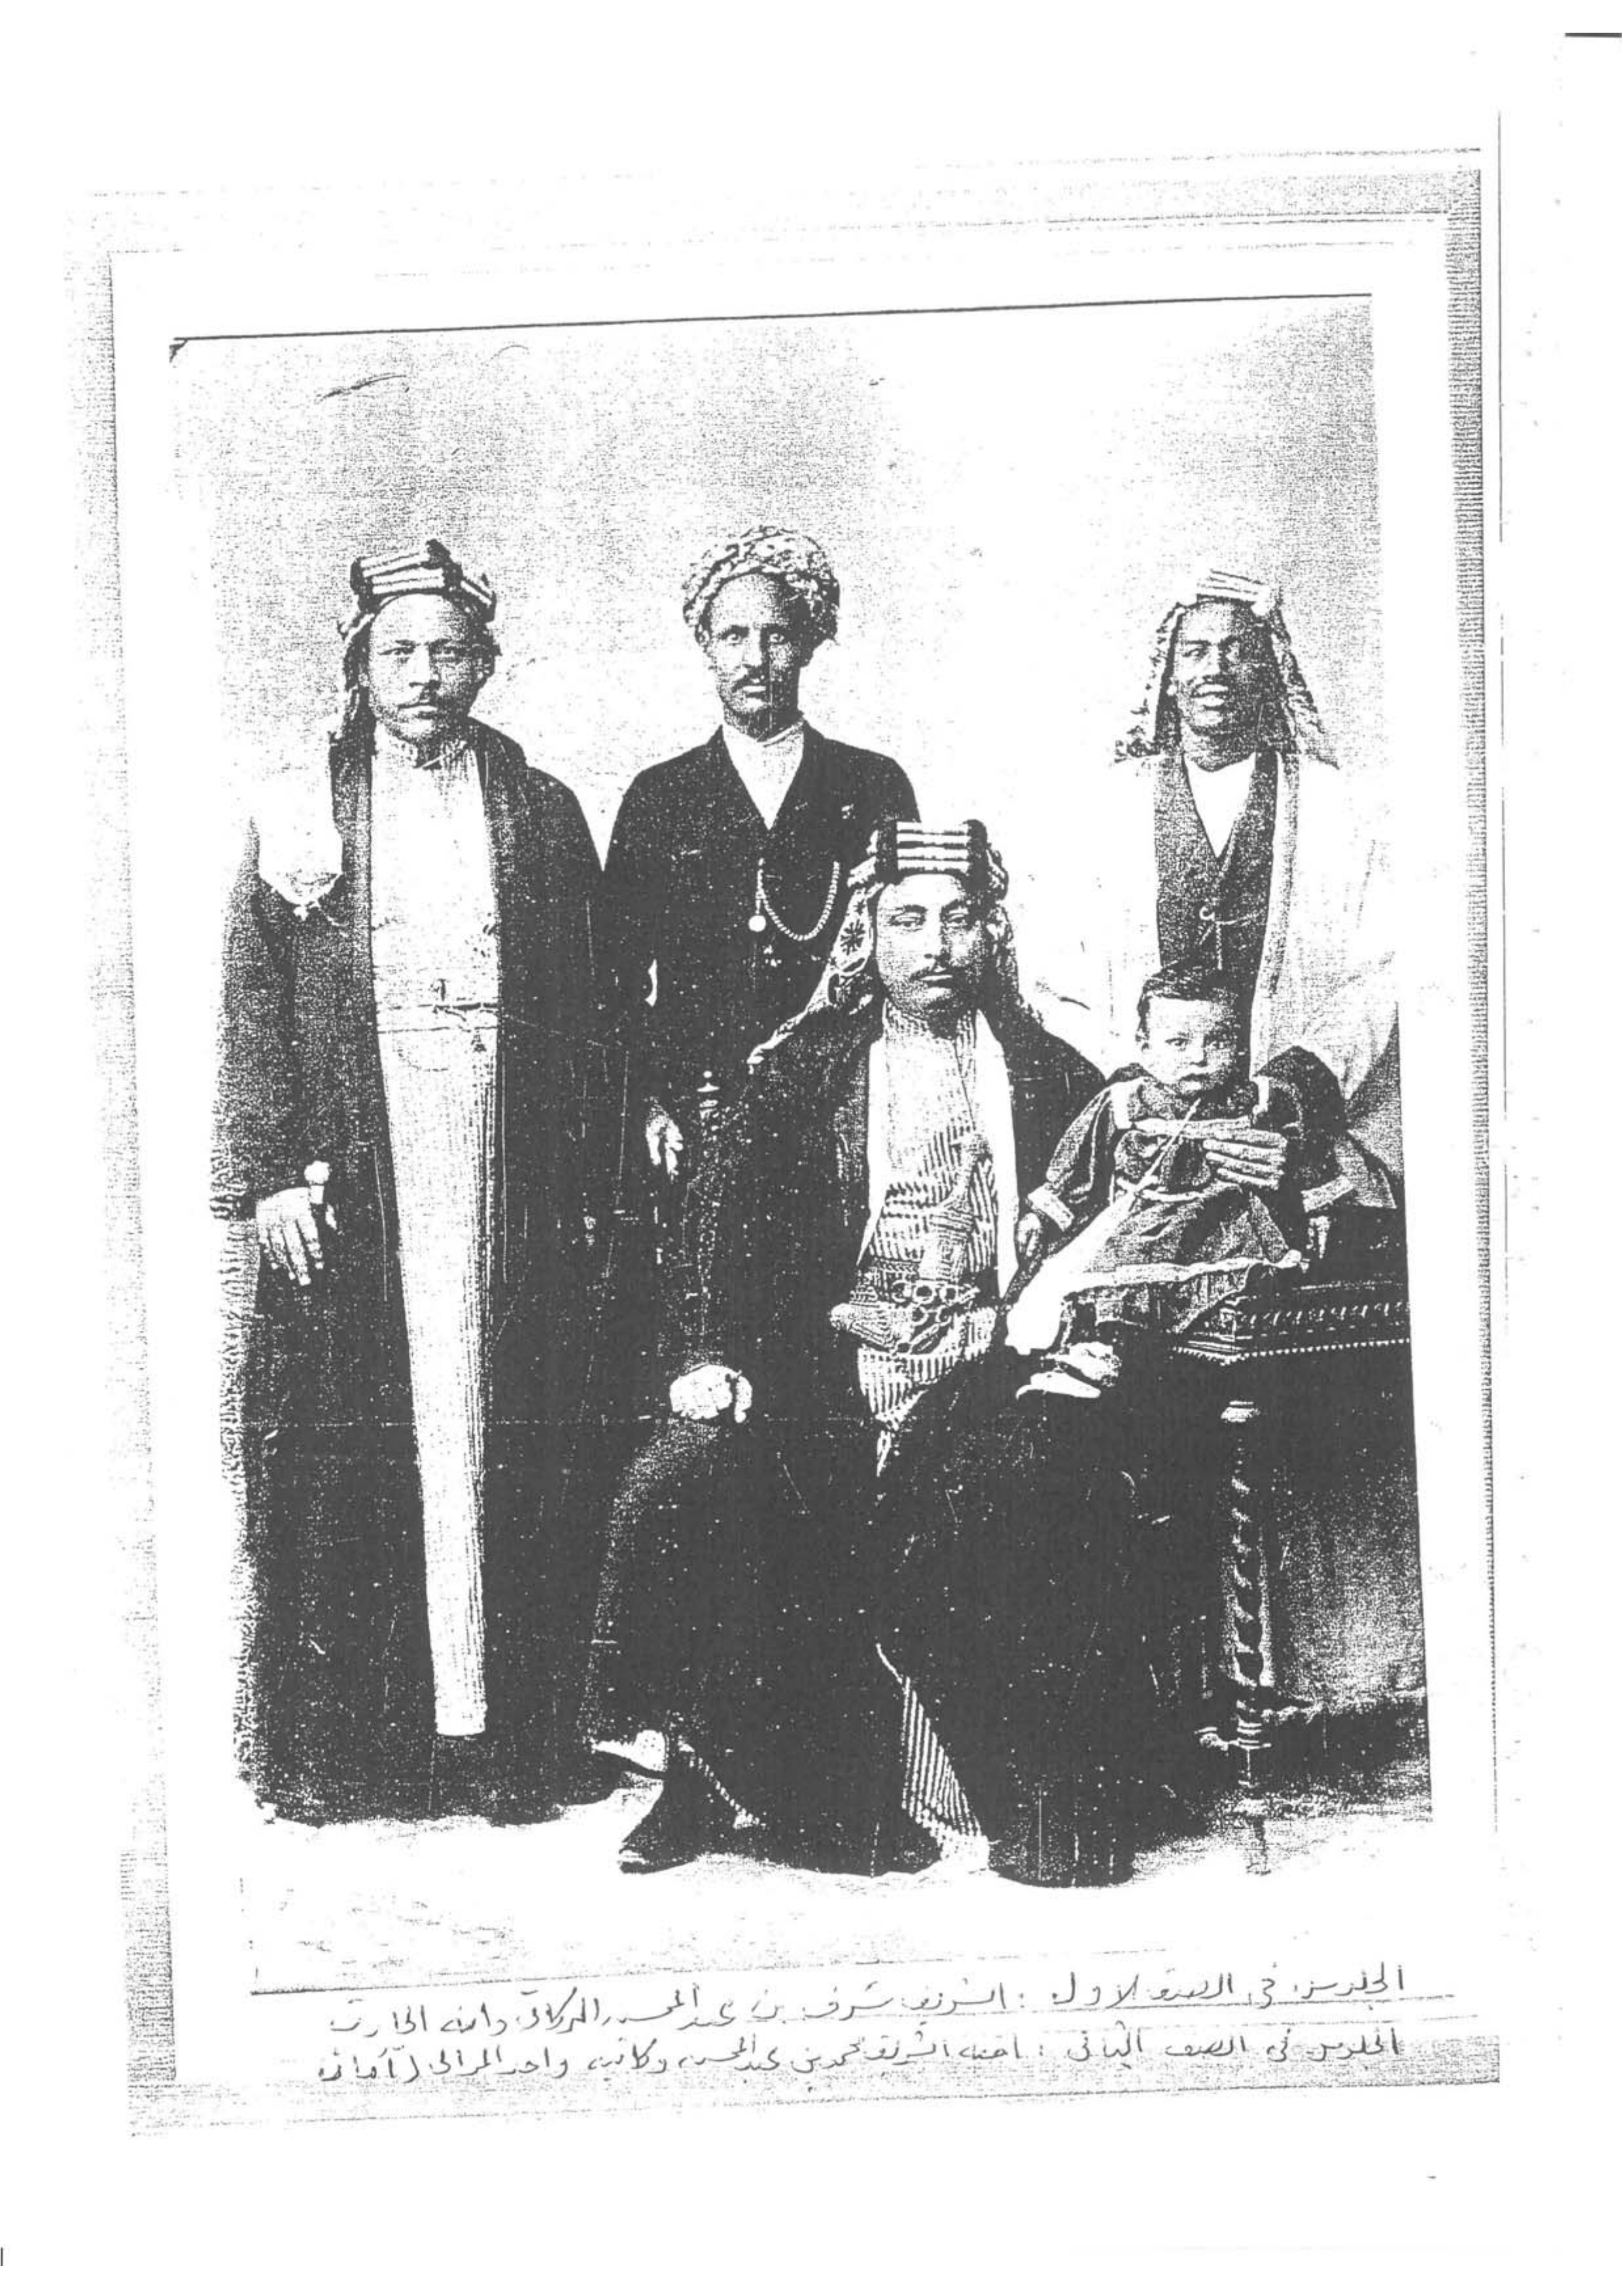 الجلوس في الصف الاول : الشريف شرف بن عبد المحسن البركاتي وابنه الحارث
الجلوس في الصف الثاني : اخيه الشريف محمد بن عبد المحسن وكاتبه واحد الموالي